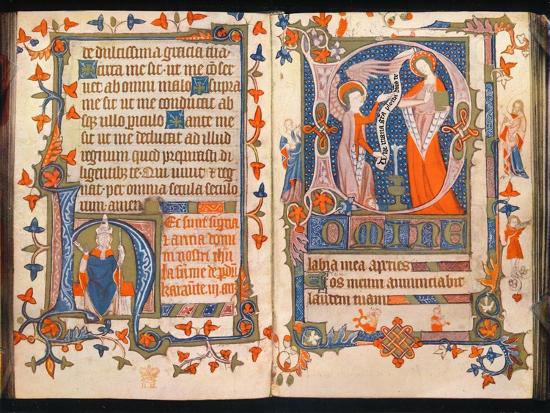 te dulcissima gracia tua
Iuxta me sit. ut me cōser
uet ab omni malo. Supra
me sit ut me conducat ab
oī periculo Ante me
sit ut me deducat ad illud
regnum quod preparasti di
ligentib; te. Qui uiuit et reg
nat. per omnia secula seculo
rum. amen.
Hec sunt signa
et arma domi
ni nostri
karante. iii. an
aue maria gracia plena dns te
Domine
labia mea aperies
Et os meum annunciabit
laudem tuam